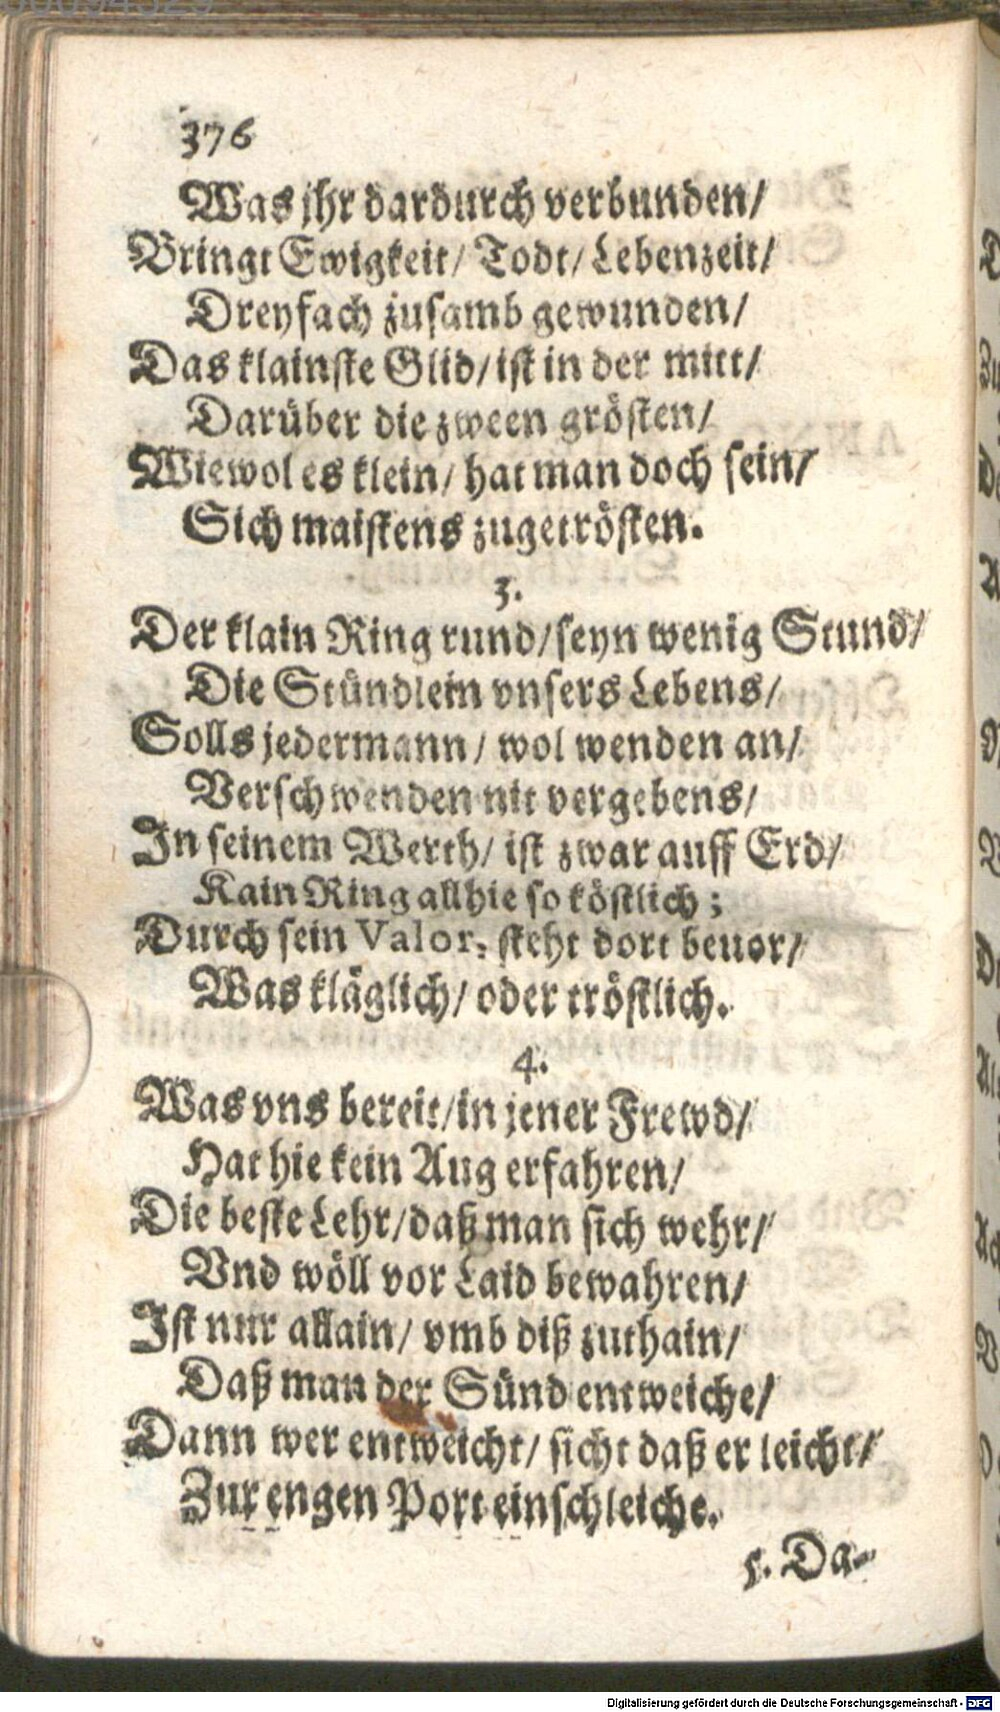 376
Was jhr dardurch verbunden/
Bringt Ewigkeit/ Todt/ Lebenzeit/
Dreyfach zusamb gewunden/
Das klainste Glid/ ist in der mitt/
Darüber die zween grösten/
Wiewol es klein/ hat man doch sein/
Sich maistens zugetrösten.
3.
Der klain Ring rund/ seyn wenig Stund/
Die Stündlein vnsers Lebens/
Solls jedermann/ wol wenden an/
Verschwenden nit vergebens/
In seinem Werth/ ist zwar auff Erd/
Kain Ring allhie so köstlich;
Durch sein Valor, steht dort beuor/
Was kläglich/ oder tröstlich.
4.
Was vns bereit/ in jener Frewd/
Hat hie kein Aug erfahren/
Die beste Lehr/ daß man sich wehr/
Vnd wöll vor Laid bewahren/
Ist nur allain/ vmb diß zuthain/
Daß man der Sünd entweiche/
Dann wer entweicht/ sicht daß er leicht/
Zur engen Port einschleiche.
5. Da-
Digitalisierung gefördert durch die Deutsche Forschungsgemeinschaft - DFG